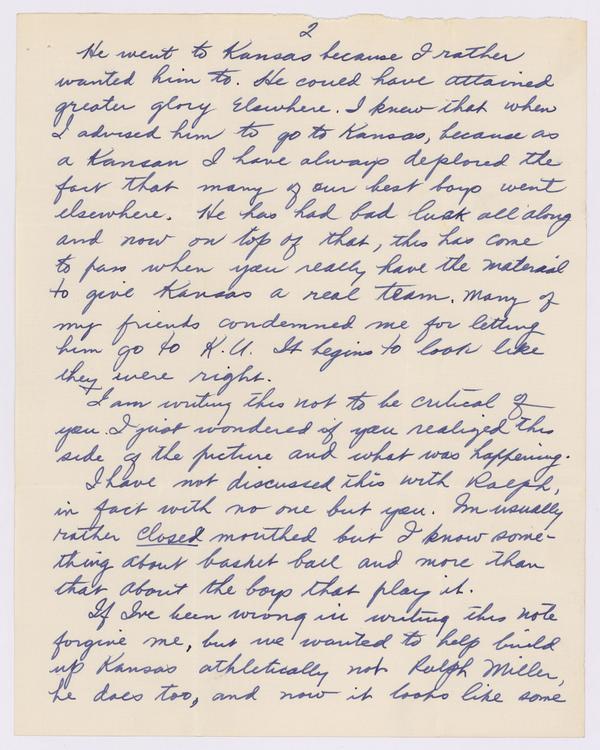 2
He went to Kansas because I rather
wanted him to. He could have attained
greater glory Elsewhere. I knew that when
I advised him to go to Kansas, because as
a Kansan I have always deplored the
fact that many of our best boys went
elsewhere. He has had bad luck all along
and now on top of that, this has come
to pass when you really have the material
to give Kansas a real team. Many of
my friends condemned me for letting
him go to K.U. It begins to look like
they were right.
I am writing this not to be critical of
you. I just wondered if you realized this
side of the picture and what was happening.
I have not discussed this with Ralph,
in fact with no one but you. I'm usually
rather closed mouthed but I know some-
thing about basket ball and more than
that about the boys that play it.
If I've been wrong in writing this note
forgive me, but we wanted to help build
up Kansas athletically not Ralph Miller,
he does too, and now it looks like some